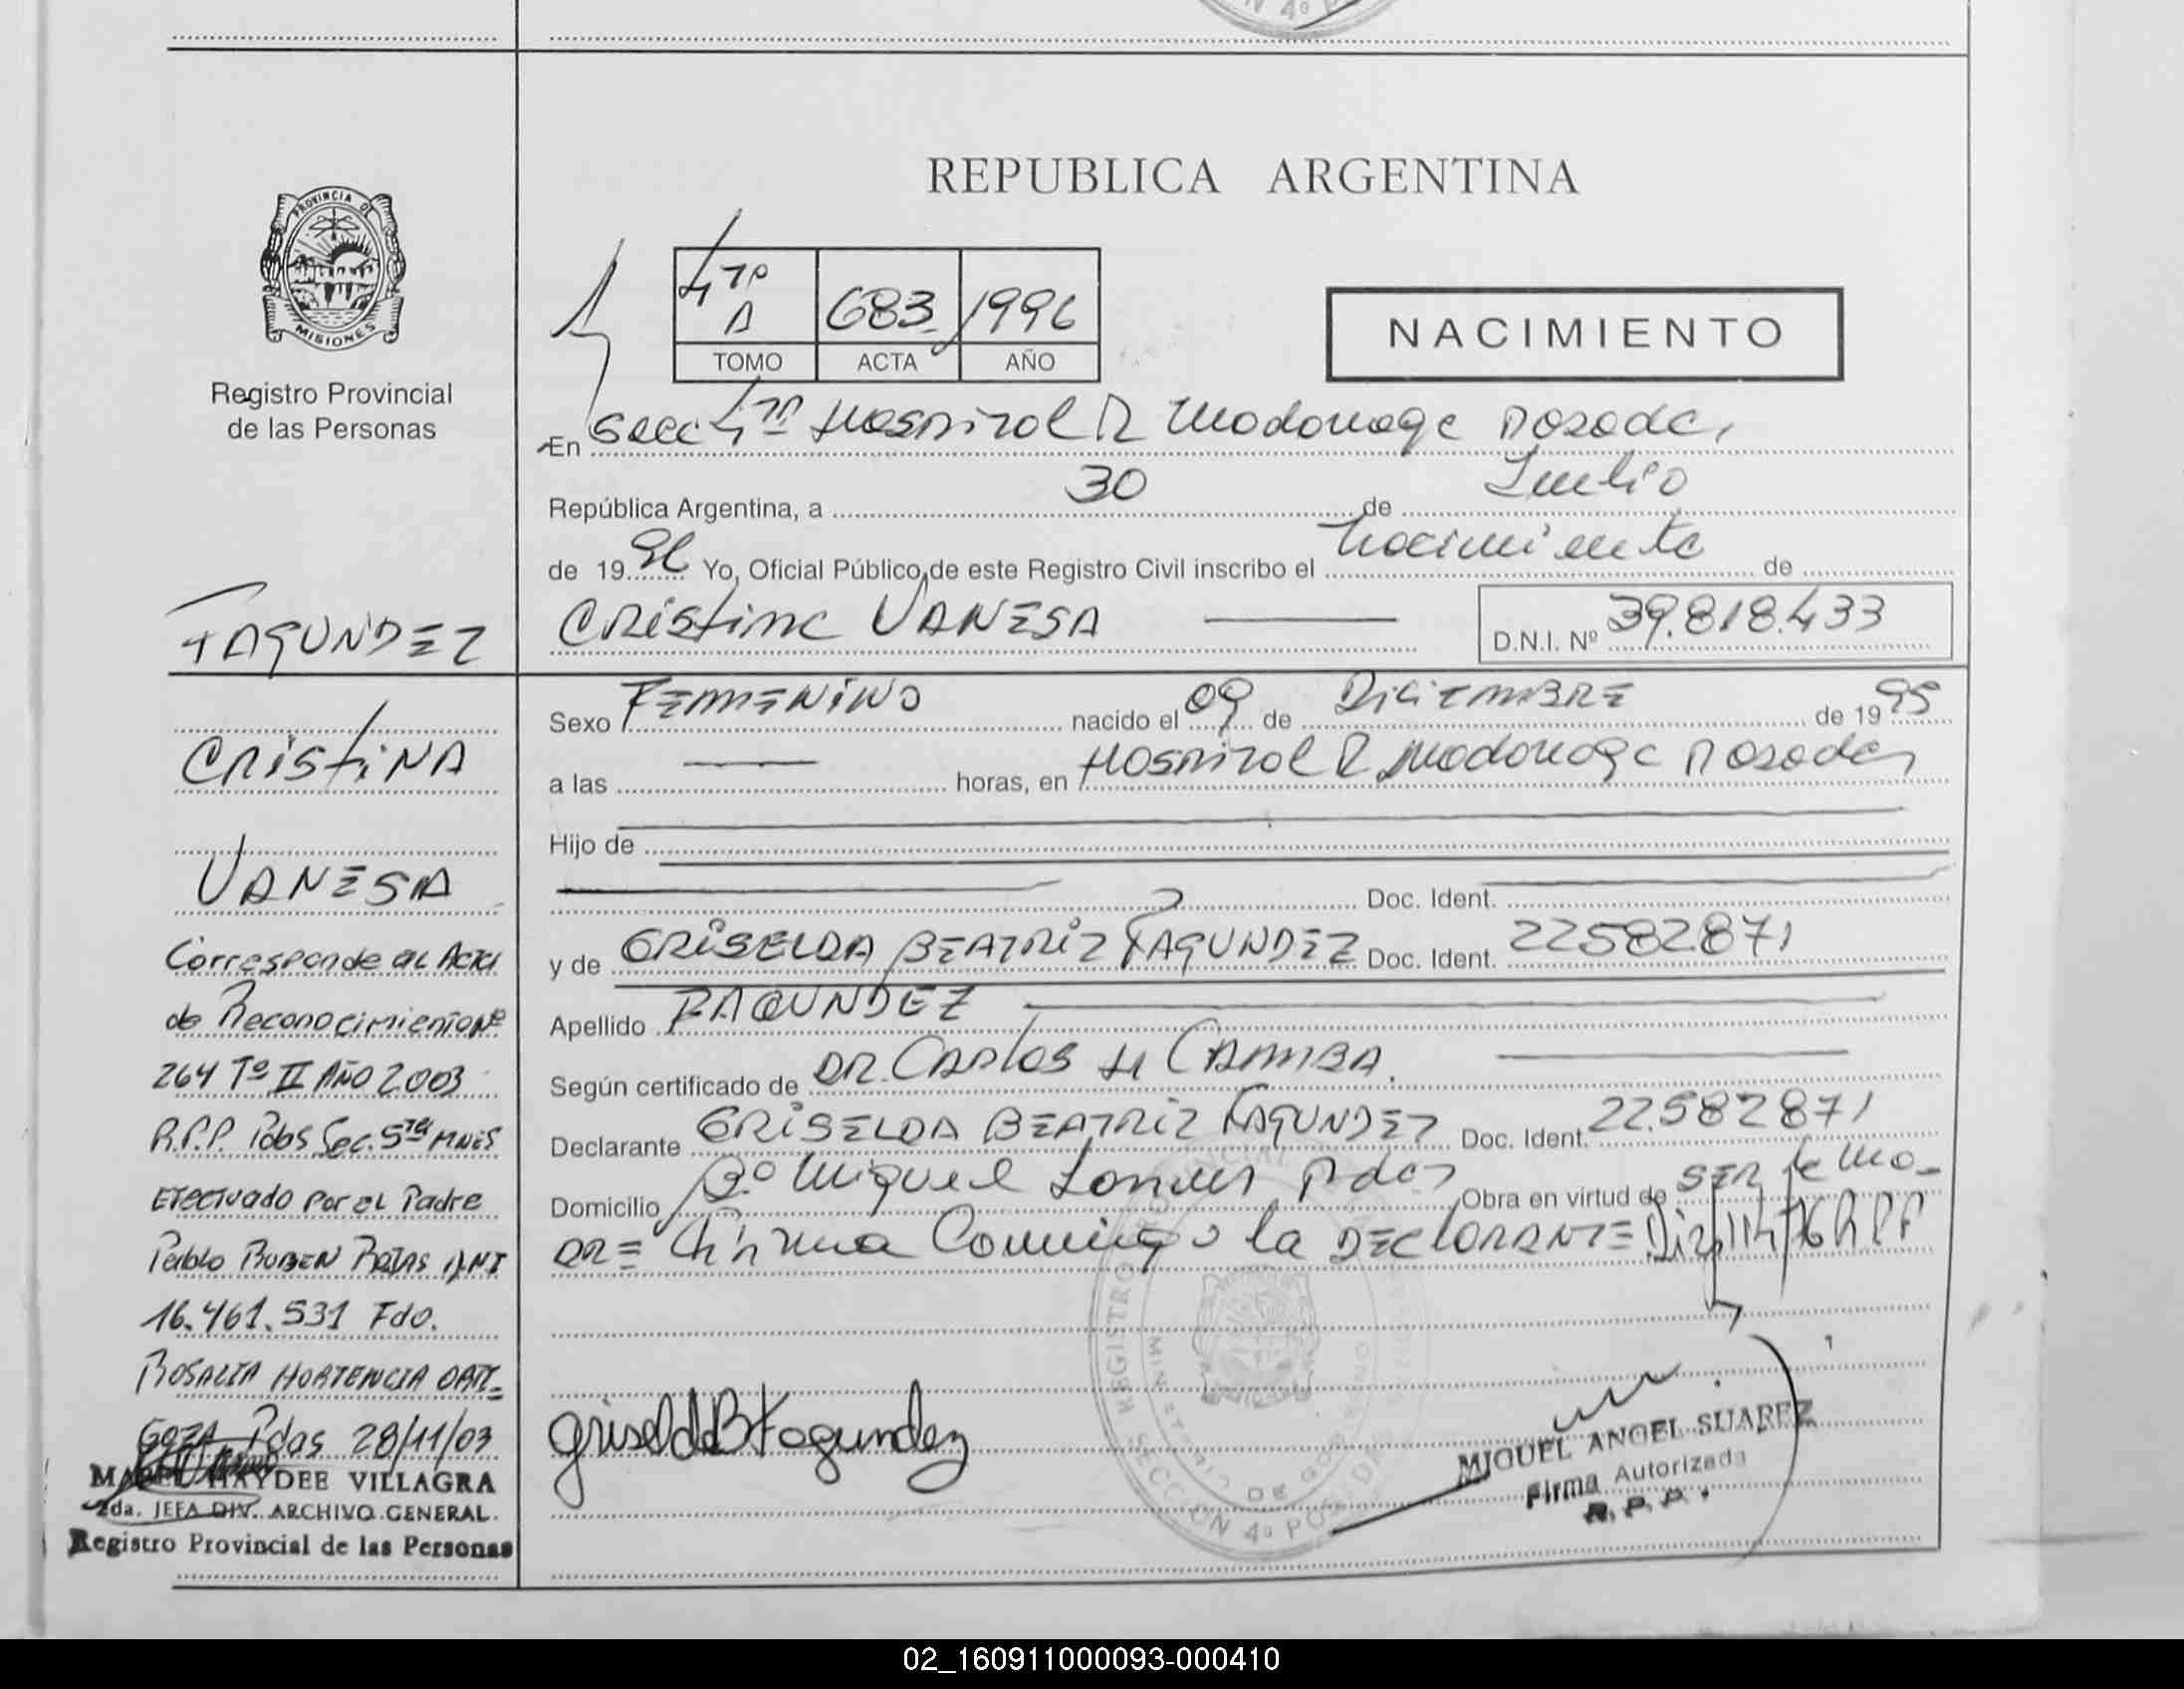 REPUBLICA ARGENTINA
PROVINCIA DE
MISIONES
Registro Provincial
de las Personas
4ta A 683 1996
TOMO ACTA AÑO
NACIMIENTO
En Secc 4ta Hospital R Madariaga Posadas
República Argentina, a 30 de Julio
de 1996 Yo, Oficial Público de este Registro Civil inscribo el nacimiento de
CRistina VANESA D.N.I. Nº 39.818.433
Sexo FEMENiNO nacido el 09 de DiCiEMBRE de 1995
a las horas, en Hospital R Madariaga Posadas
Hijo de
Doc. Ident.
y de GRiSELDA BEATRiZ FAGUNDEZ Doc. Ident. 22582871
Apellido FAGUNDEZ
Según certificado de DR. CARlOS H GAMBA.
Declarante GRiSELDA BEATRiZ FAGUNDEZ Doc. Ident. 22.582871
Domicilio Bº Miguel Lanus Pdas Obra en virtud de SER la Ma-
DRE Firma Conmigo la DEClARANTE R.P.P
griselda B Fagundez
MIGUEL ANGEL SUAREZ
Firma Autorizada
R.P.P.
FAGUNDEZ
CRiStiNA
VANESA
Corresponde al Acta
de Reconocimiento Nº
264 Tº II AÑO 2003
R.P.P. Pdas Sec. 5ta MNES
Efectuado Por el Padre
Pablo RUBEN ROJAS DNI
16.461.531 Fdo.
ROSALIA HORTENCIA ORTI-
GOZA Pdas 28/11/03
MABEL HAYDEE VILLAGRA
2da. JEFA DIV. ARCHIVO GENERAL
Registro Provincial de las Personas
02_160911000093-000410